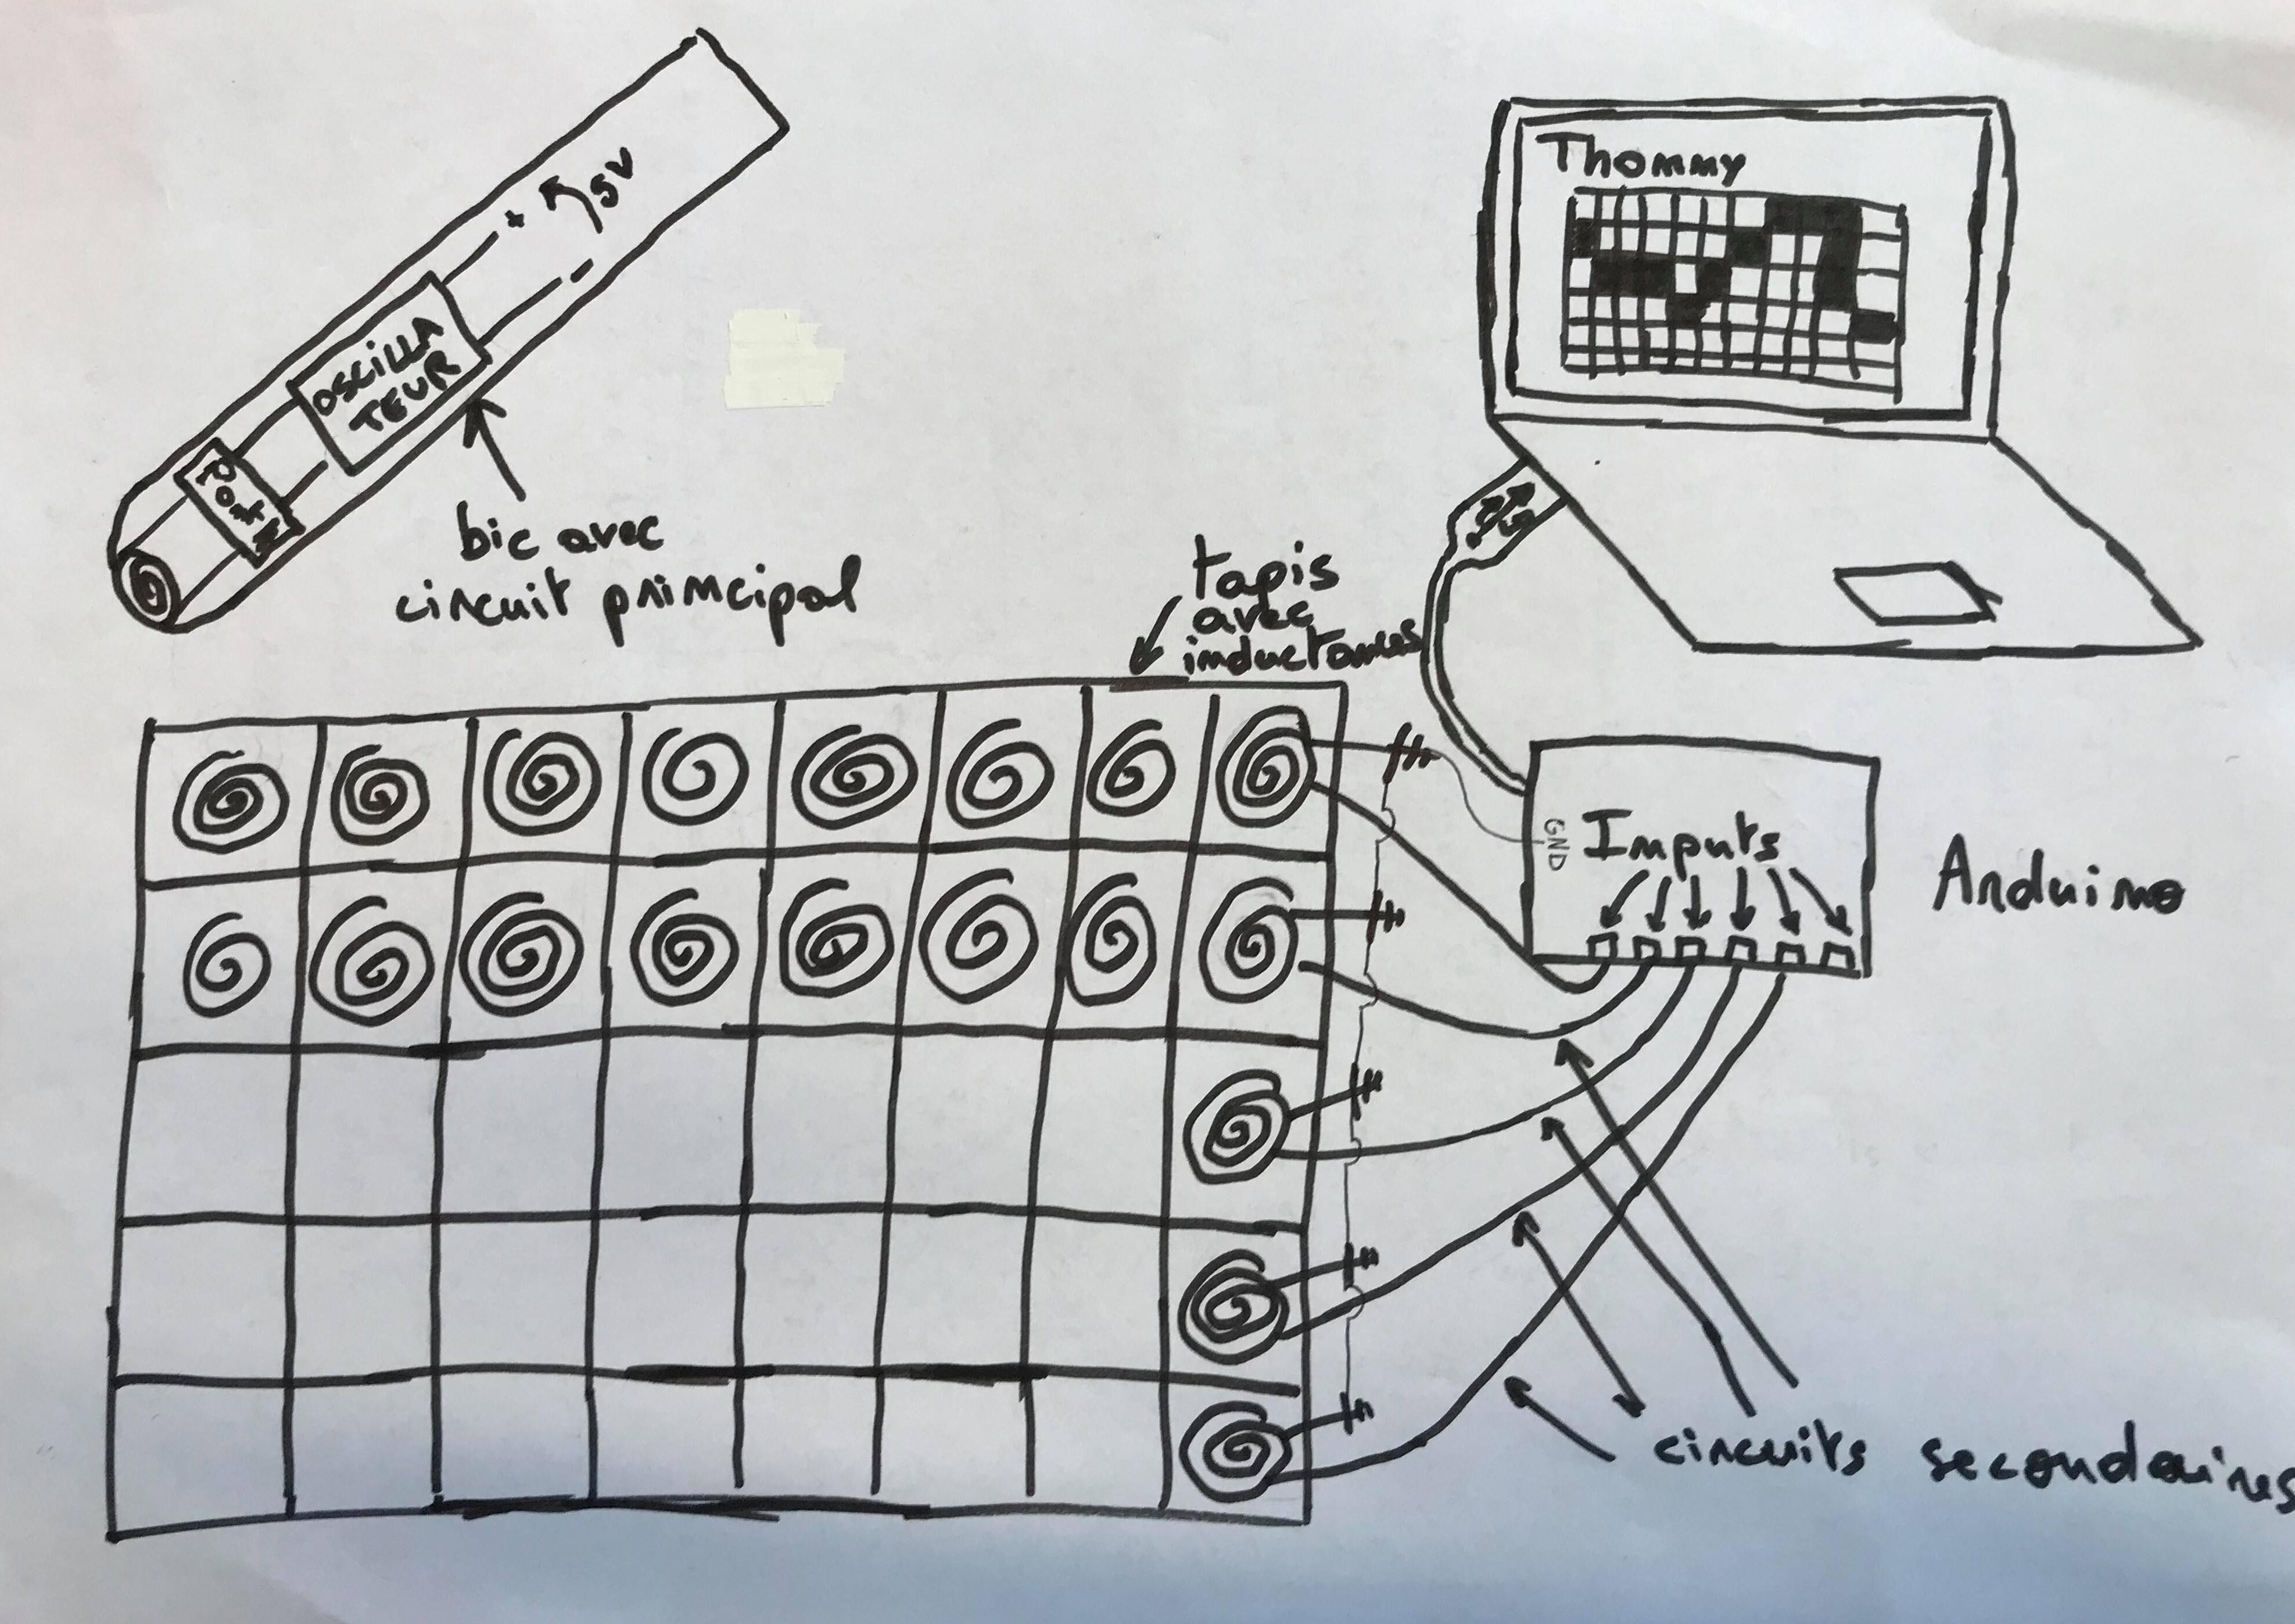 + 5V
OSCILLA
TEUR
bic avec
circuit principal
Thommy
tapis
avec
inductances
GND
Inputs
Arduino
circuits secondaires